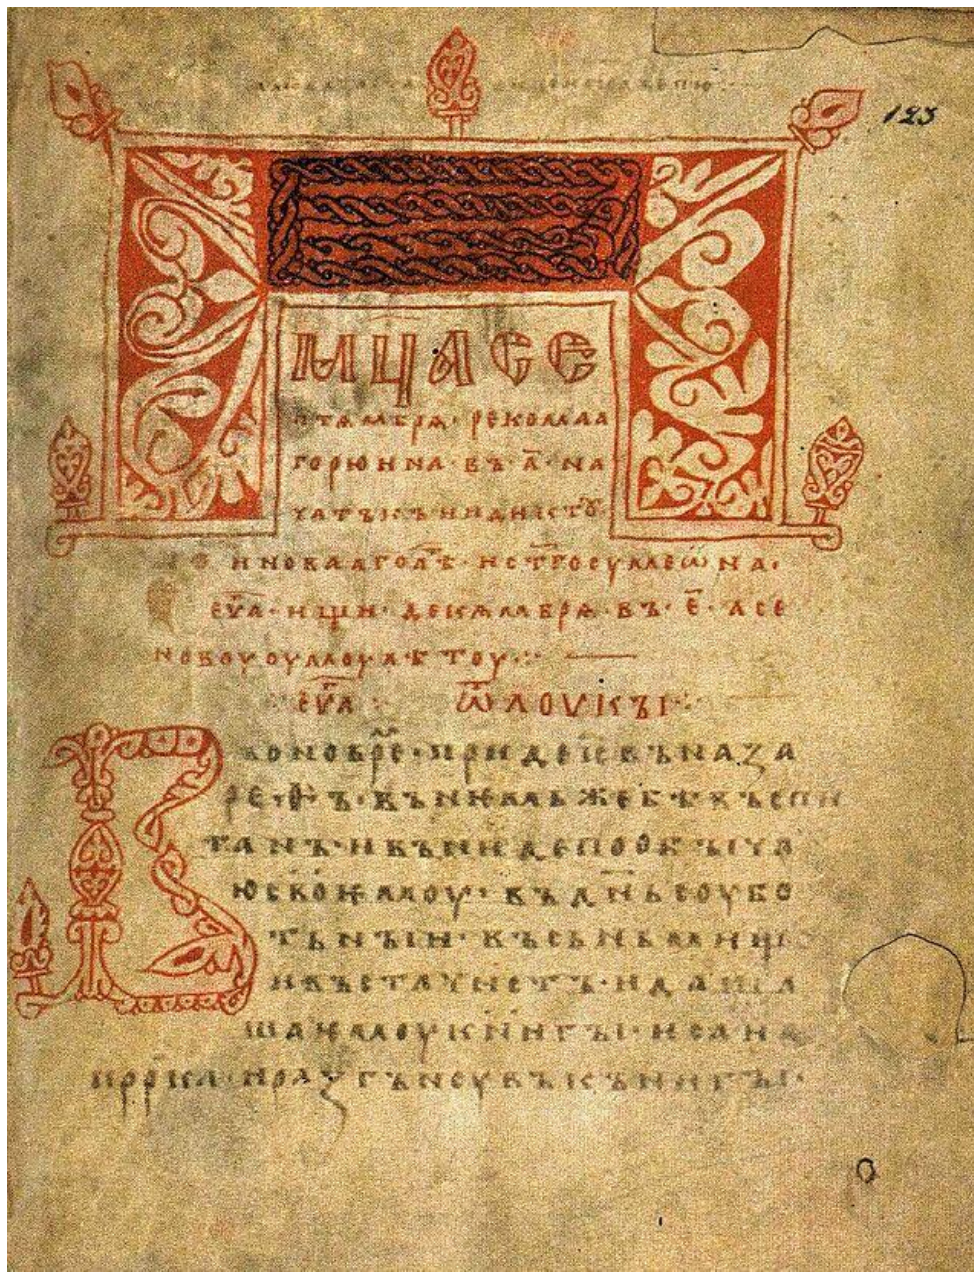 123
МЦА СЕ
птѧмбрѧ · рекомаа
горюина · въ · а҃ · на
чатъкъ индикто
и новааго лѣ · и стго сумеѡна ·
еѵ҃а · ищи · декѧмбрѧ · въ · е҃ · а се
новоуоумоу лѣтоу ·:·
еѵ҃а ѿ лоукъі ·:·
В
оно врѣ · приде іс въ наза
реѳъ · въ немь же бѣ въспи
танъ · и въниде по объіча
ю своѥмоу · въ днь соубо
тьнъіи · въ сьньмище
и въста чистъ · и даша
ѥмоу кнігъі · исаиа
пррка · и разгъноувъ кънигъі ·